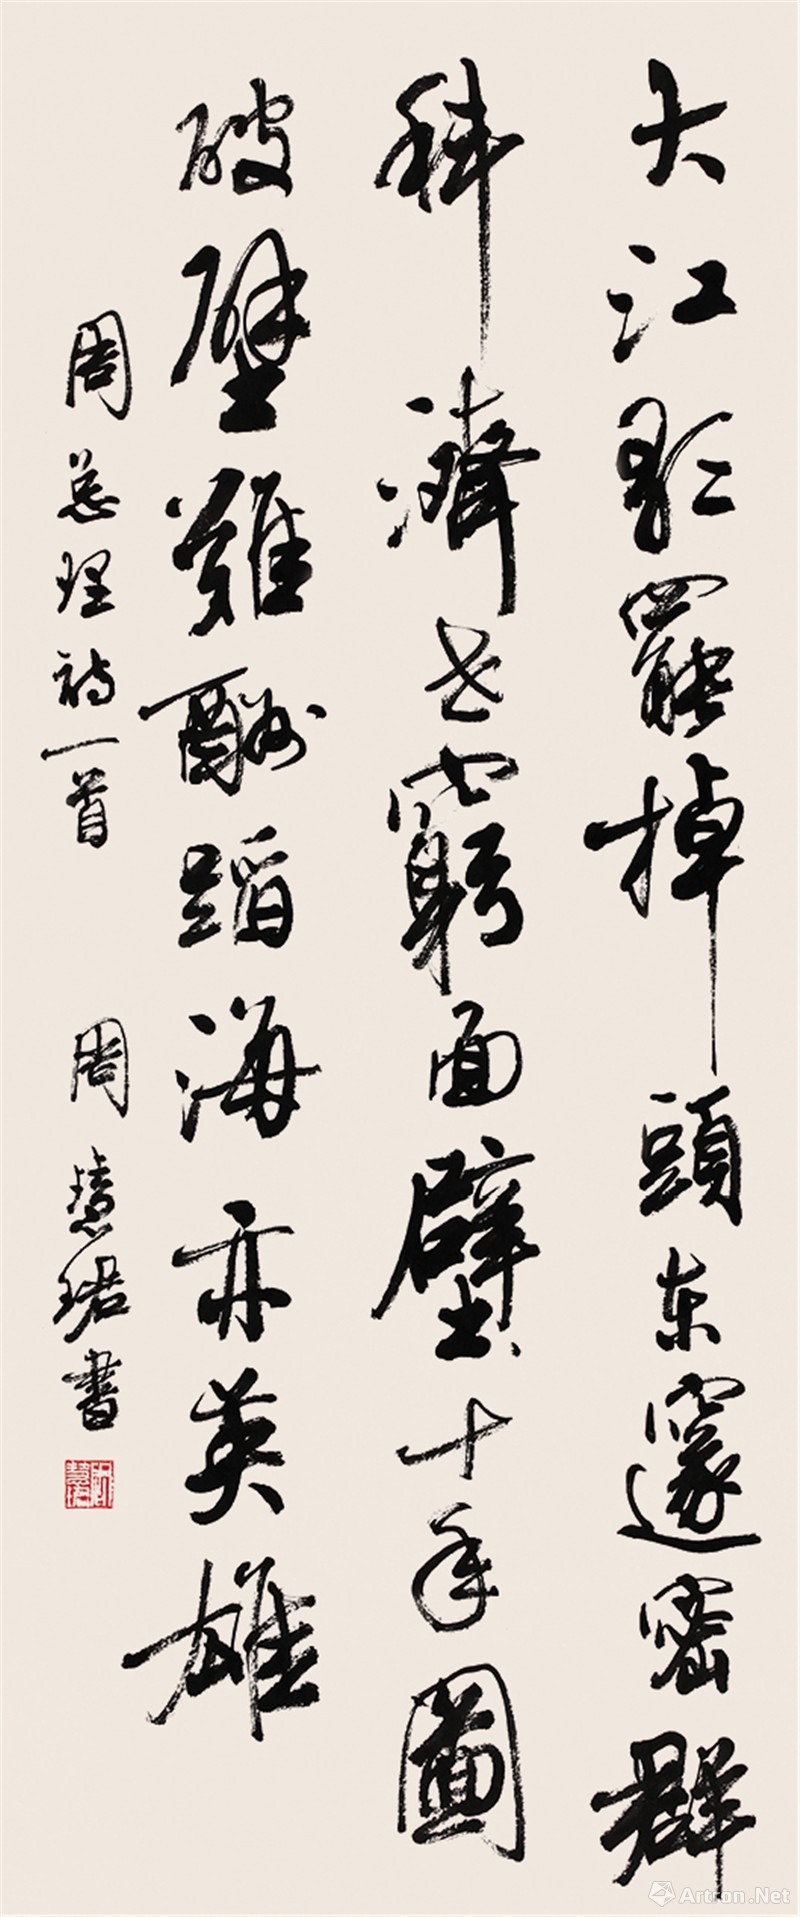 大江歌罷掉頭東邃密群
科濟世窮面壁十年圖
破壁難酬蹈海亦英雄
周总理詩一首
周慧珺書
周慧珺
Artron.Net